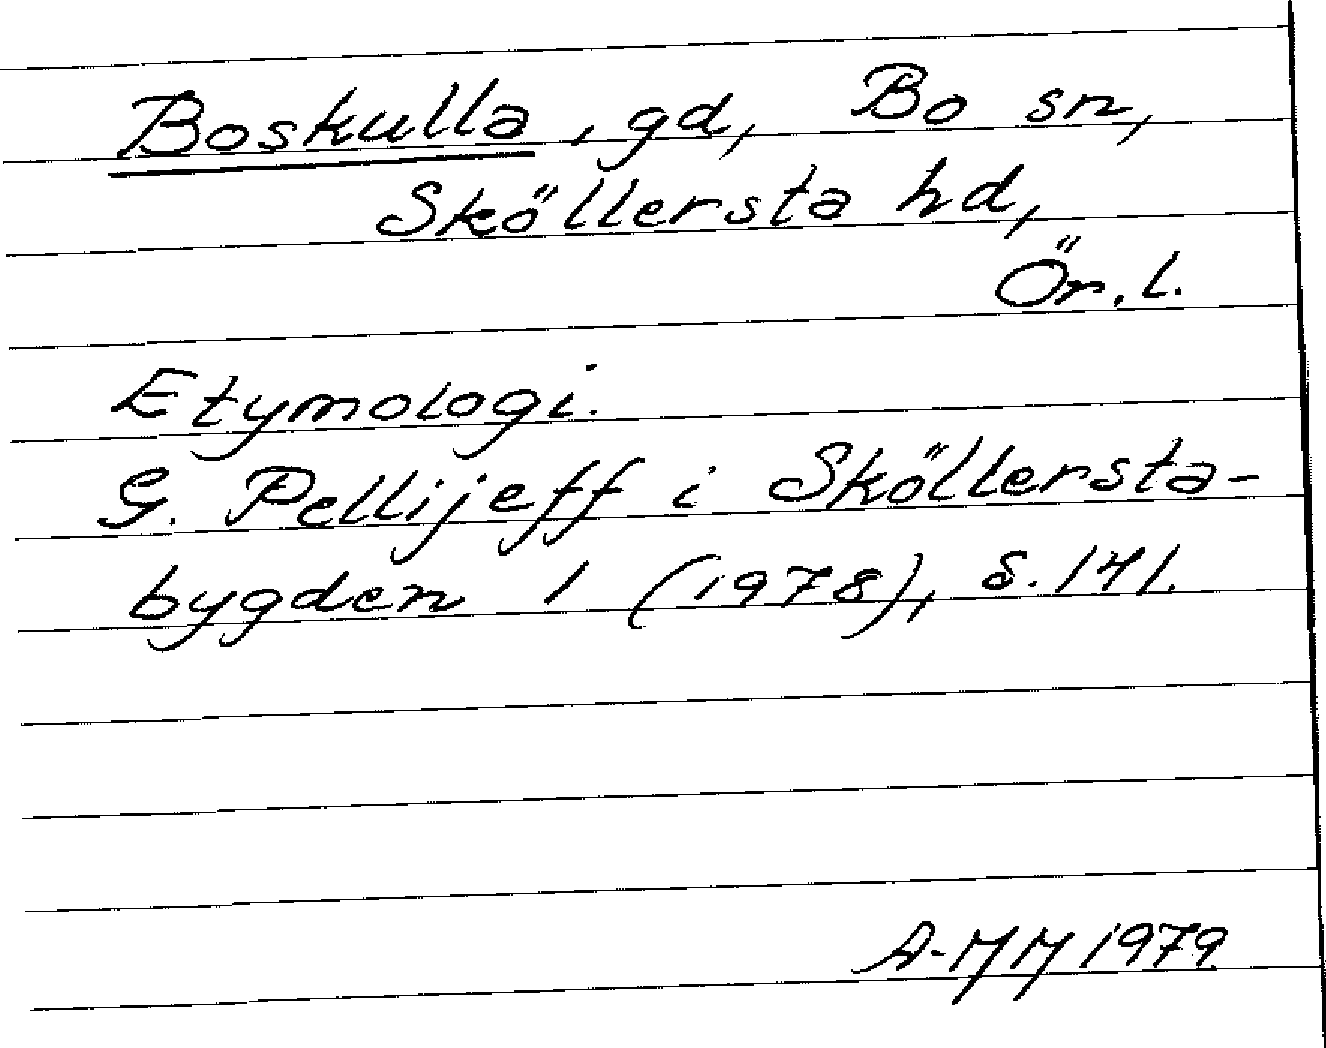 Boskulla, gd, Bo sn,
Sköllersta hd,
Ör. l.
Etymologi.
G. Pellijeff i Sköllersta-
bygden 1 (1978), s. 141.
A-MM 1979